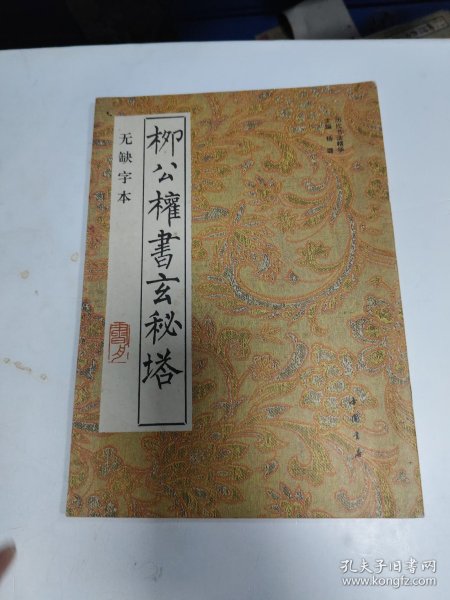 柳公權書玄秘塔
无缺字本
主编 杨璐
中国书店
孔夫子旧书网
www.kongfz.com